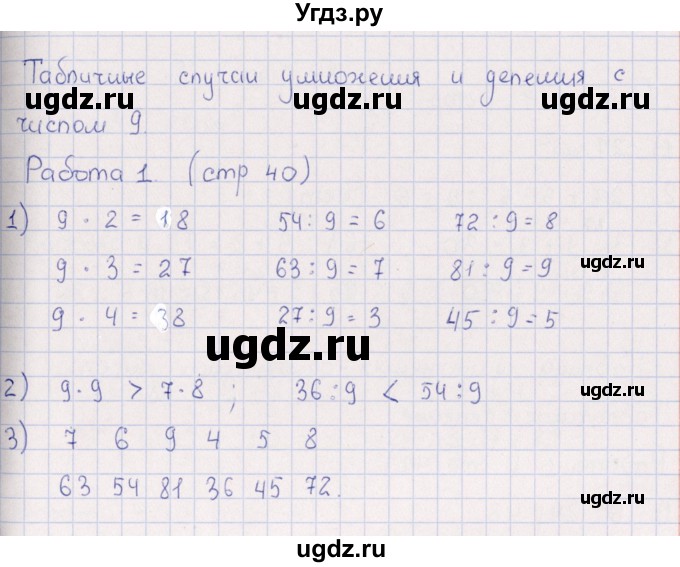 Угдз.ру
Табличные случаи умножения и деления с
ugdz.ru ugdz.ru
числом 9.
Работа 1. (стр 40)
1) 9 · 2 = 18 54 : 9 = 6 72 : 9 = 8
9 · 3 = 27 63 : 9 = 7 81 : 9 = 9
ugdz.ru
9 · 4 = 38 27 : 9 = 3 45 : 9 = 5
ugdz.ru
2) 9 · 9 > 7 · 8 ; 36 : 9 < 54 : 9
3) 7 6 9 4 5 8
63 54 81 36 45 72.
ugdz.ru
ugdz.ru